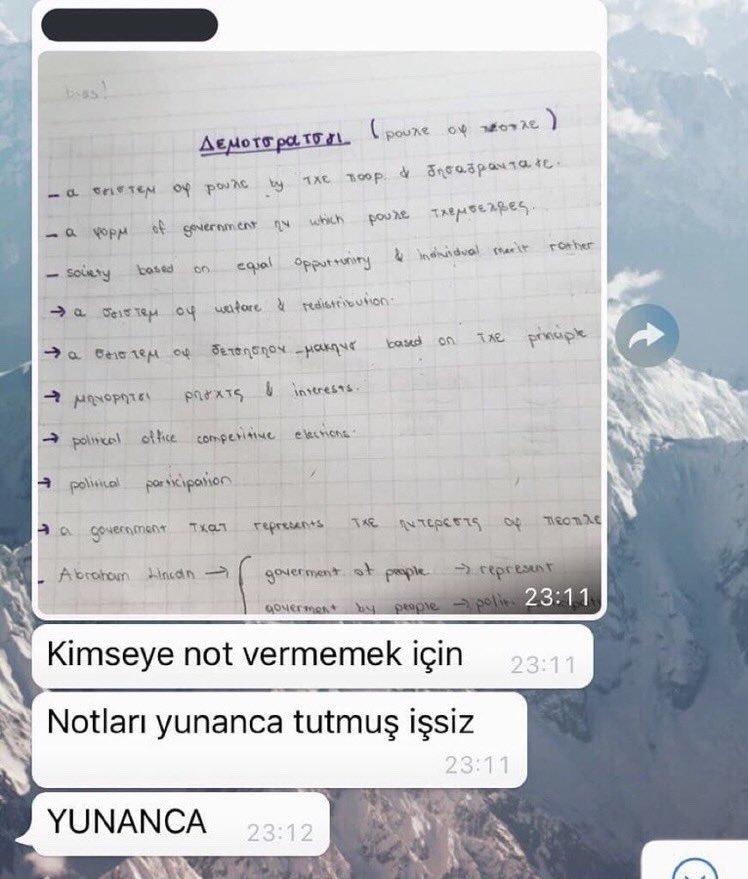 bias!
Δεμοτσρατσι (ρουλε οφ πεοπλε)
- a σειστεμ οφ ρουλε by τχε ποορ &
- a φορμ of government ην which ρουλε τχεμσελβες.
- society based on equal oppurtunity & individual merit rather
→ a σειστεμ οφ welfare & redistribution.
→ a σειστεμ οφ -μακηνγ based on τχε principle
→ μηνορητει ρηγχτς & interests.
→ political office competitive elections.
→ political participation
→ a government τχατ represents τχε ηντερεστς οφ πεοπλε
- Abraham Lincoln → { goverment of people → represent
goverment by people → polit.
23:11
Kimseye not vermemek için 23:11
Notları yunanca tutmuş işsiz
23:11
YUNANCA 23:12